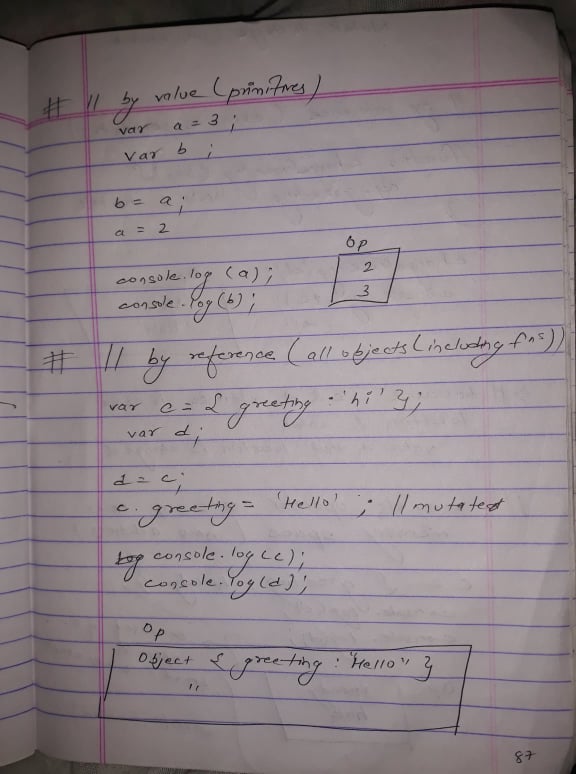 # // by value (primitives)
var a = 3 ;
var b ;
b = a ;
a = 2
console.log (a) ;
console.log (b) ;
Op
2
3
# // by reference (all objects (including fns))
var c = { greeting : 'hi' };
var d;
d = c;
c. greeting = 'Hello' ; // mutated
console.log(c);
console.log(d);
Op
Object { greeting : "Hello" }
"
87